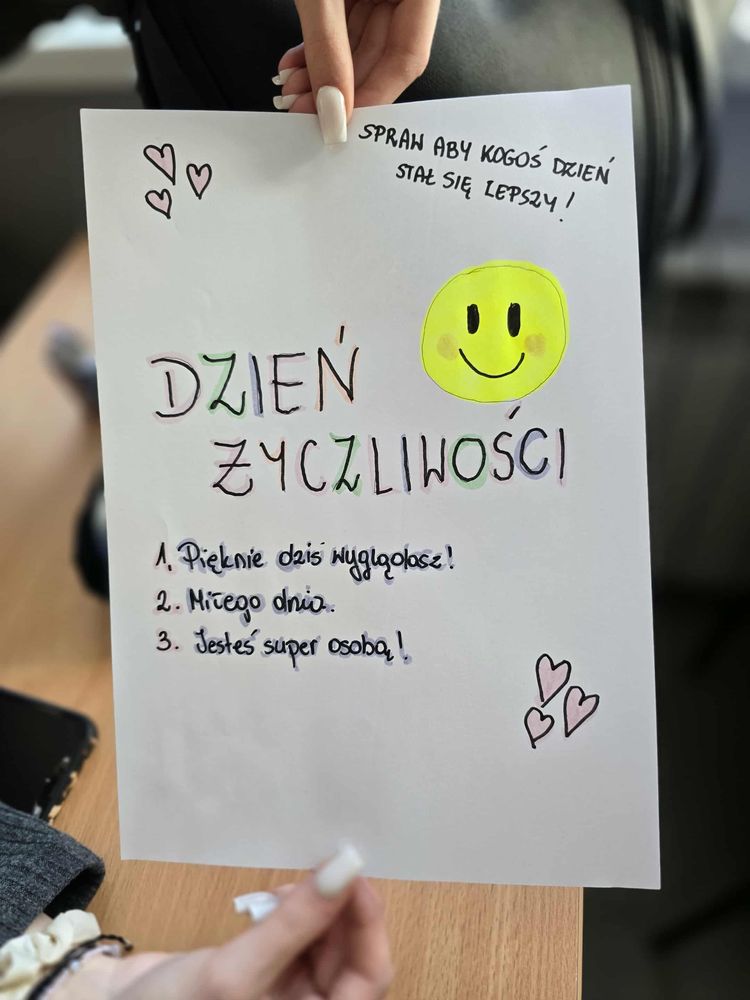 SPRAW ABY KOGOŚ DZIEŃ
STAŁ SIĘ LEPSZY!
DZIEŃ
ŻYCZLIWOŚCI
1. Pięknie dziś wyglądasz!
2. Miłego dnia.
3. Jesteś super osobą!